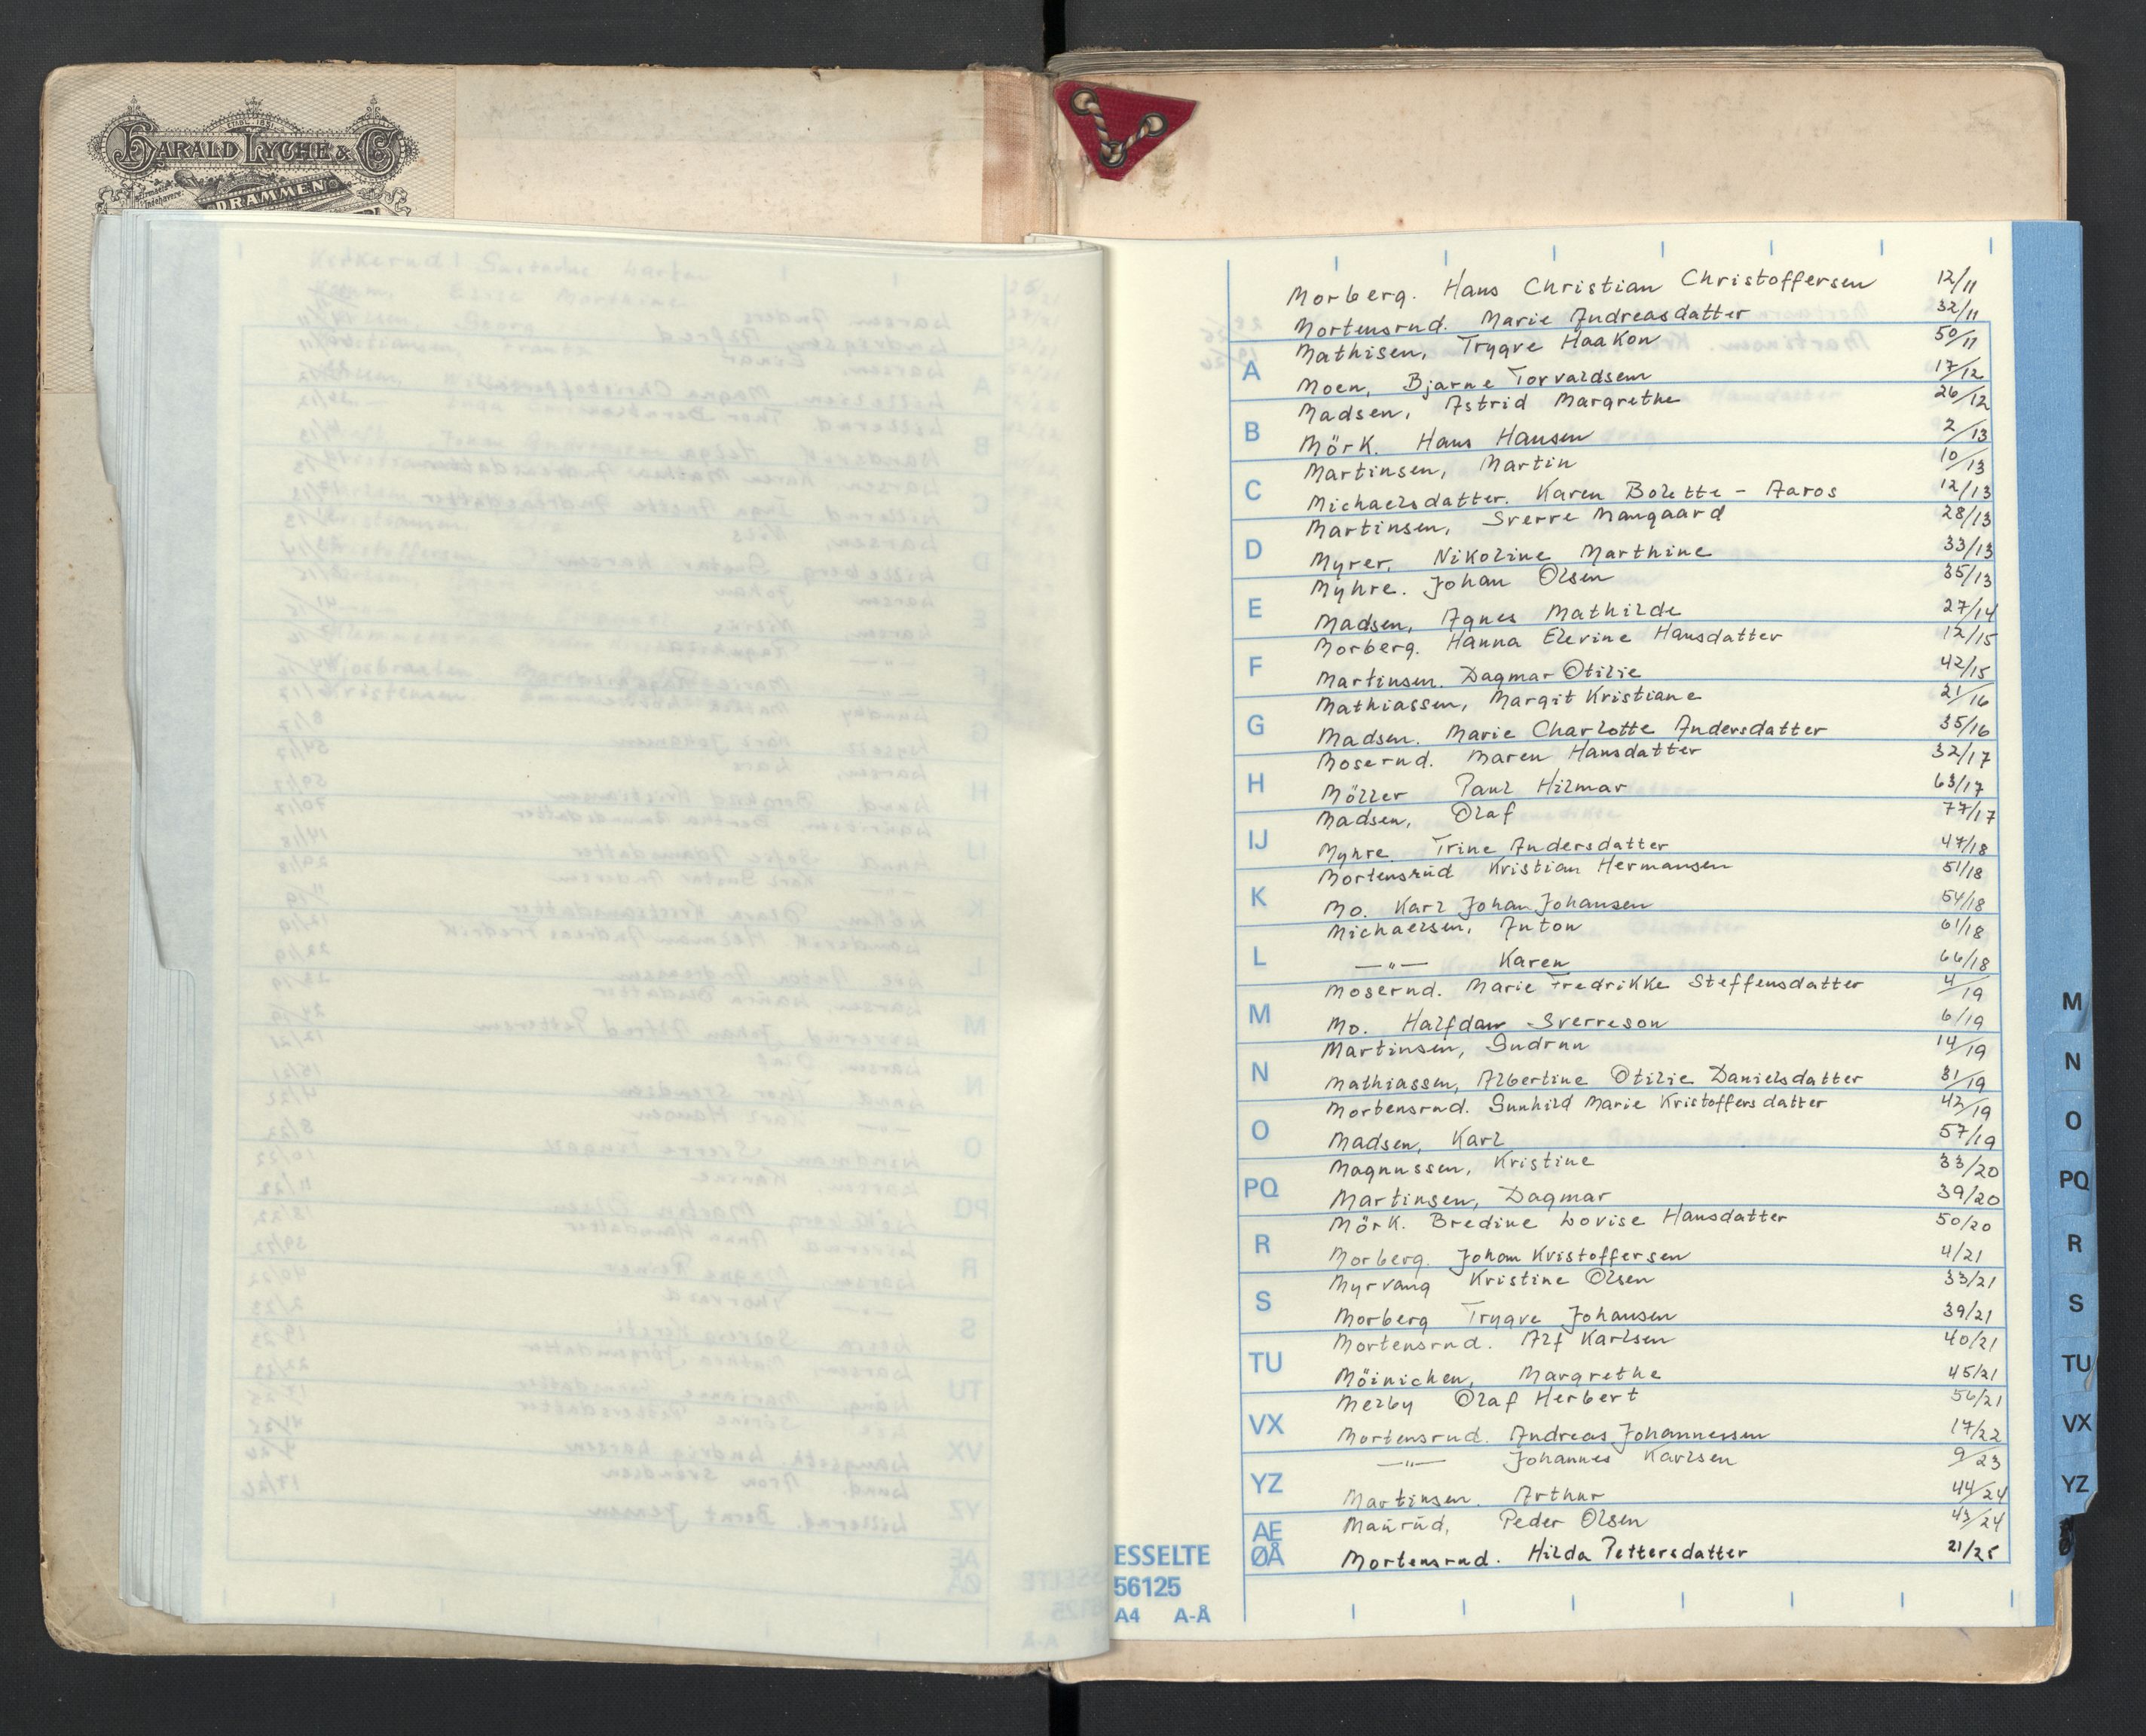 ETABL. 1851
HARALD LYCHE & Co
DRAMMEN
Morberg. Hans Christian Christoffersen 12/11
Mortensrud. Marie Andreasdatter 32/11
Mathisen, Trygve Haakon 50/11
Moen, Bjarne Torvaldsen 17/12
Madsen, Astrid Margrethe 26/12
Mörk. Hans Hansen 2/13
Martinsen, Martin 10/13
Michaelsdatter. Karen Bolette - Aaros 12/13
Martinsen, Sverre Mangaard 28/13
Myrer, Nikoline Marthine 33/13
Myhre. Johan Olsen 35/13
Madsen, Agnes Mathilde 27/14
Morberg. Hanna Elevine Hansdatter 12/15
Martinsen. Dagmar Otilie 42/15
Mathiassen, Margit Kristiane 21/16
Madsen. Marie Charlotte Andersdatter 35/16
Moserud. Maren Hansdatter 32/17
Möller Paul Hilmar 63/17
Madsen, Olaf 77/17
Myhre. Trine Andersdatter 47/18
Mortensrud Kristian Hermansen 51/18
Mo. Karl Johan Johansen 54/18
Michaelsen, Anton 61/18
—"— Karen 66/18
Moserud. Marie Fredrikke Steffensdatter 4/19
Mo. Halfdan Sverreson 6/19
Martinsen, Gudrun 14/19
Mathiassen, Albertine Otilie Danielsdatter 31/19
Mortensrud. Gunhild Marie Kristoffersdatter 42/19
Madsen, Karl 57/19
Magnussen, Kristine 33/20
Martinsen, Dagmar 39/20
Mörk. Bredine Lovise Hansdatter 50/20
Morberg. Johan Kristoffersen 4/21
Myrvang Kristine Olsen 33/21
Morberg Trygve Johansen 39/21
Mortensrud. Alf Karlsen 40/21
Möinichen, Margrethe 45/21
Melby Olaf Herbert 56/21
Mortensrud. Andreas Johannessen 17/22
—"— Johannes Karlsen 9/23
Martinsen. Arthur 44/24
Maurud, Peder Olsen 43/24
Mortensrud. Hilda Pettersdatter 21/25
A
B
C
D
E
F
G
H
IJ
K
L
M
N
O
PQ
R
S
TU
VX
YZ
AE
ØÅ
ESSELTE
56125
A4 A-Å
M
N
O
PQ
R
S
TU
VX
YZ